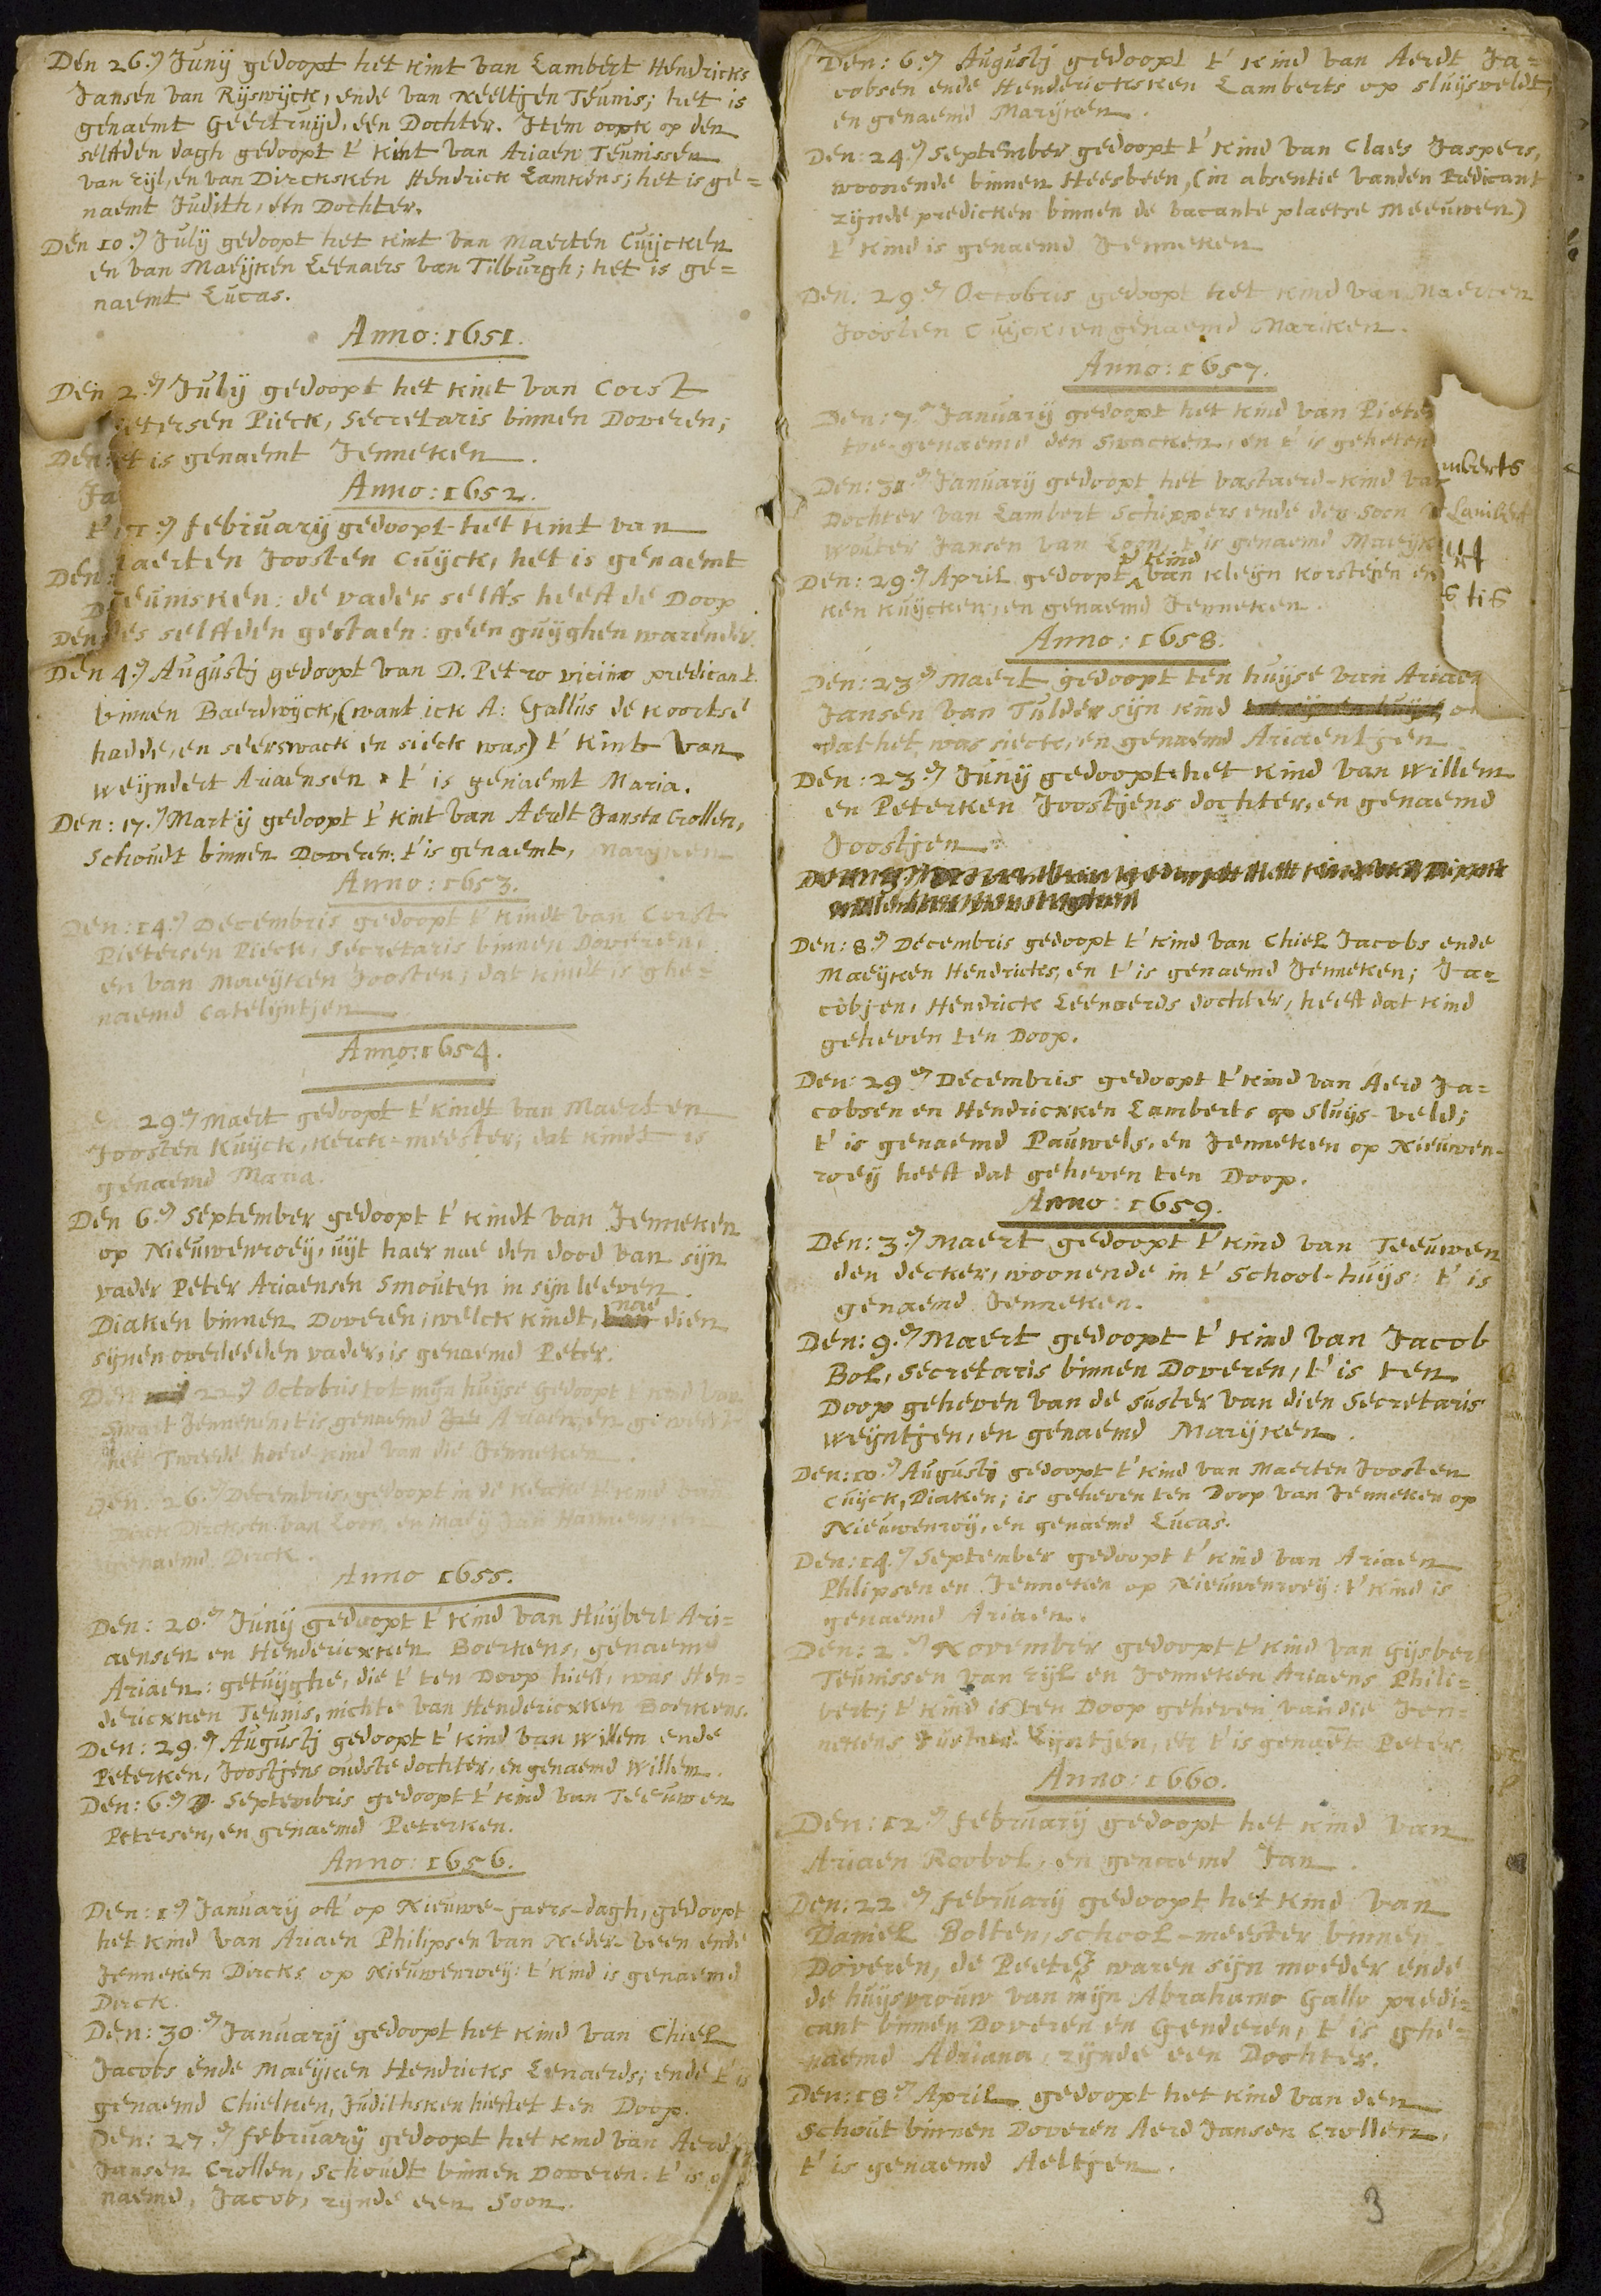 Den 26.en Junij gedoopt het kint van Lambert Hendricks
Jansen van Rijswijck, ende van Neeltjen Teunis; het is
genaemt Geertruijd, een Dochter. Item oock op den
selfden dagh gedoopt t' kint van Ariaen Teunissen
van Zijl, en van Dircksken Hendrick Lamkens; het is ge=
naemt Judith, een Dochter.
Den 10.en Julij gedoopt het kint van Maerten Cuijcken
en van Maeijken Leenaers van Tilburgh; het is ge=
naemt Lucas.
Anno: 1651.
Den 2.en Julij gedoopt het kint van Corst
etersen Pieck, Secretaris binnen Doveren;
et is genaemt Jenneken.
Anno: 1652.
februarij gedoopt het kint van
aerten Joosten Cuijck, het is genaemt
eunisken: de vader selfs heeft de Doop
des selfden gestaen: geen guijghen warender.
Den 4.en Augustj gedoopt van D. Petro vicino predicant
binnen Baerdwijck, (want ick A: Gallus de koortse
hadde, en seer swack en sieck was) t' kint van
Weijndert Ariaensen t' is genaemt Maria.
Den: 17.en Martij gedoopt t' kint van Aerdt Jansen Crollen,
Schoudt binnen Doveren: t' is genaemt, Marijken
Anno: 1653.
Den: 14.en Decembris gedoopt t' kindt van Corst
Pietersen Pieck, Secretaris binnen Doveren,
en van Maeijken Joosten; dat kindt is ghe=
naemd Catelijntjen
Anno: 1654.
29.en Maert gedoopt t' kindt van Maerten
Joosten Kuijck, Kerck-meester; dat kindt is
genaemd Maria.
Den 6.en September gedoopt t' kindt van Jenneken
op Nieuwenroeij, uijt haer nae den dood van sijn
vader Peter Ariaensen Smouten in sijn leeven
Diaken binnen Doveren; welck kindt, nae dien
sijnen overleeden vader, is genaemd Peter.
Den 22.en Octobris tot mijn huijse gedoopt t' kind van
Swart Jenneken, t is genaemd Ariaentjen
het Tweede hoere-kind van die Jenneken.
Den: 26.en Decembris, gedoopt in de kercke t' kind van
Dirck Dircksen van Loon, en Maeij Jan
genaemd Dirck.
Anno 1655.
Den: 20.en Junij gedoopt t' kind van Huijbert Ari=
aensen en Hendericxken Boerkens, genaemd
Ariaen: getuijghe, die t' ten Doop hieff, was Hen=
dericxken Teunis, nichte van Hendericxken Boerkens.
Den: 29.en Augustj gedoopt t' kind van Willem ende
Peterken, Joostjens oudste dochter, en genaemd Willem.
Den: 6.en Septembris gedoopt t' kind van Teeuwen
Petersen, en genaemd Peterken.
Anno: 1656.
Den: 1.en Januarij oft op Nieuwe-jaers-dagh, gedoopt
het kind van Ariaen Philipsen van Neder-veen ende
Jenneken Dircks op Nieuwenroeij: t' kind is genaemd
Dirck.
Den: 30.en Januarij gedoopt het kind van Chiel
Jacobs ende Maeijken Hendricks Lenaerds; ende t' is
genaemd Chielken, Judithsken hief het ten Doop.
Den: 27.en februarij gedoopt het kind van Aerd
Jansen Crollen, Schoudt binnen Doveren: t' is
naemd, Jacob, zijnde een Soon.
Den: 6.en Augustj gedoopt t' kind van Aerdt Ja=
cobsen ende Hendericksken Lamberts op sluijsveldt,
en genaemd Marijken.
Den: 24.en September gedoopt t' kind van Claes Jaspers,
woonende binnen Heesbeen, (in absentie vanden Predicant
zijnde predicken binnen de vacante plaetse Meeuwen)
t' kind is genaemd Jenneken
Den: 29.en Octobris gedoopt het kind van Maerten
Joosten Cuijck, en genaemd Mariken.
Anno: 1657.
Den: 7.en Januarij gedoopt het kind van Piete
toe-genaemd den Swacken, en t' is geheten
mberts
Den: 31.en Januarij gedoopt het bastaerd-kind va
Dochter van Lambert Schippers ende den soon
Lambert
Wouter Jansen van Loon, t' is genaemd Maeijk
Den: 29.en April gedoopt t' kind van Kleijn Korstejen en
ken Kuijcken, en genaemd Jenneken.
Anno: 1658.
Den: 23.en Maert gedoopt ten huijse van Ariaen
Jansen van Tulder sijn kind
dat het was sieck, en genaemd Ariaentjen
Den: 23.en Junij gedoopt het kind van Willem
en Peterken Joostjens dochter, en genaemd
Joostjen.
Den: 8.en Decembris gedoopt t' kind van Chiel Jacobs ende
Maeijken Hendricks, en t' is genaemd Jenneken; Ja=
cobjen, Hendrick Leenaerds dochter, heeft dat kind
geheven ten Doop.
Den: 29.en Decembris gedoopt t' kind van Aerd Ja=
cobsen en Hendricxken Lamberts op Sluijs-veld;
t' is genaemd Pauwels, en Jenneken op Nieuwen-
roeij heeft dat geheven ten Doop.
Anno: 1659.
Den: 3.en Maert gedoopt t' kind van Teeuwen
den decker, woonende in t' School-huijs: t' is
genaemd Jenneken.
Den: 9.en Maert gedoopt t' kind van Jacob
Bol, Secretaris binnen Doveren, t' is ten
Doop geheven van de suster van dien Secretaris
Weijntjen, en genaemd Marijken.
Den: 10.en Augustj gedoopt t' kind van Maerten Joosten
Cuijck, Diaken; is geheven ten Doop van Jenneken op
Nieuwenroij, en genaemd Lucas.
Den: 14.en September gedoopt t' kind van Ariaen
Phlipsen en Jenneken op Nieuwenroeij: t' kind is
genaemd Ariaen.
Den: 2.en November gedoopt t' kind van Gijsbert
Teunissen van Zijl en Jenneken Ariaens Phili=
bert; t' kind is ten Doop geheven van die Jen=
nekens suster Lijntjen, en t' is genaemt Peter.
Anno: 1660.
Den: 12.en februarij gedoopt het kind van
Ariaen Roobol, en genaemd Jan.
Den: 22.en februarij gedoopt het kind van
Daniel Bolten, school-meester binnen
Doveren, de Peeters waren sijn moeder ende
de huijsvrouw van mijn Abrahamo Gallo predi=
cant binnen Doveren en Genderen, t' is ghe=
naemd Adriana, zijnde een Dochter.
Den: 18.en April gedoopt het kind van den
Schout binnen Doveren Aerd Jansen Crollen,
t' is genaemd Aeltjen.
3